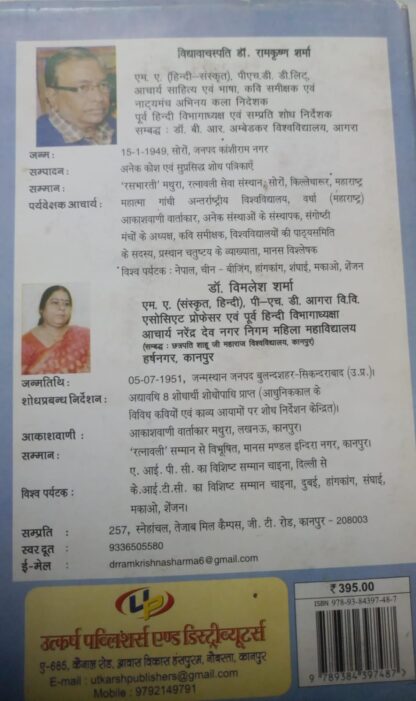 विद्यावाचस्पति डॉ. रामकृष्ण शर्मा
एम. ए. (हिन्दी-संस्कृत), पीएच.डी. डी.लिट्,
आचार्य साहित्य एवं भाषा, कवि समीक्षक एवं
नाट्यमंच अभिनय कला निदेशक
पूर्व हिन्दी विभागाध्यक्ष एवं सम्प्रति शोध निर्देशक
सम्बद्ध : डॉ. बी. आर. अम्बेडकर विश्वविद्यालय, आगरा
जन्म : 15-1-1949, सोरों, जनपद कांशीराम नगर
सम्पादन : अनेक कोश एवं सुप्रसिद्ध शोध पत्रिकाएँ
सम्मान : 'रसभारती' मथुरा, रत्नावली सेवा संस्थान, सोरों, किल्लेधारूर, महाराष्ट्र
पर्यवेक्षक आचार्य : महात्मा गांधी अन्तर्राष्ट्रीय विश्वविद्यालय, वर्धा (महाराष्ट्र)
आकाशवाणी वार्ताकार, अनेक संस्थाओं के संस्थापक, संगोष्ठी
मंचों के अध्यक्ष, कवि समीक्षक, विश्वविद्यालयों की पाठ्यसमिति
के सदस्य, प्रस्थान चतुष्टय के व्याख्याता, मानस विश्लेषक
विश्व पर्यटक : नेपाल, चीन - बीजिंग, हांगकांग, शंघाई, मकाओ, शेंजन
डॉ. विमलेश शर्मा
एम. ए. (संस्कृत, हिन्दी), पी-एच. डी. आगरा वि.वि.
एसोसिएट प्रोफेसर एवं पूर्व हिन्दी विभागाध्यक्षा
आचार्य नरेंद्र देव नगर निगम महिला महाविद्यालय
(सम्बद्ध : छत्रपति शाहू जी महाराज विश्वविद्यालय, कानपुर)
हर्षनगर, कानपुर
जन्मतिथि : 05-07-1951, जन्मस्थान जनपद बुलन्दशहर-सिकन्दराबाद (उ.प्र.)।
शोधप्रबन्ध निर्देशन : अद्यावधि 8 शोधार्थी शोधोपाधि प्राप्त (आधुनिककाल के
विविध कवियों एवं काव्य आयामों पर शोध निर्देशन केन्द्रित)।
आकाशवाणी : आकाशवाणी वार्ताकार मथुरा, लखनऊ, कानपुर।
सम्मान : 'रत्नावली' सम्मान से विभूषित, मानस मण्डल इन्दिरा नगर, कानपुर।
ए. आई. पी. सी. का विशिष्ट सम्मान चाइना, दिल्ली से
विश्व पर्यटक : के.आई.टी.सी. का विशिष्ट सम्मान चाइना, दुबई, हांगकांग, संघाई,
मकाओ, शेंजन।
सम्प्रति : 257, स्नेहांचल, तेजाब मिल कैम्पस, जी. टी. रोड, कानपुर - 208003
स्वर दूत : 9336505580
ई-मेल : drramkrishnasharma6@gmail.com
UP
उत्कर्ष पब्लिशर्स एण्ड डिस्ट्रीब्यूटर्स
ए-685, कैनाल रोड, आवास विकास हंसपुरम, नौबस्ता, कानपुर
E-mail : utkarshpublishers@gmail.com
Mobile : 9792149791
₹ 395.00
ISBN 978-93-84397-48-7
9 789384 397487